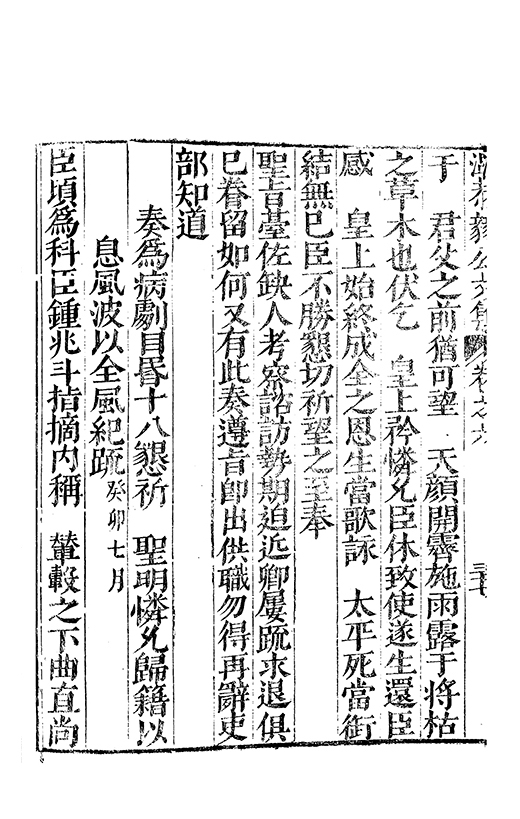 溫恭毅公文集 卷之六 三十七
于　君父之前猶可望　天顏開霽施雨露于將枯
之草木也伏乞　皇上矜憐允臣休致使遂生還臣
感　皇上始終成全之恩生當歌詠　太平死當銜
結無已臣不勝懇切祈望之至奉
聖旨臺佐缺人考察諮訪勢期迫近卿屢疏求退俱
已眷留如何又有此奏遵旨卽出供職勿得再辭吏
部知道
奏爲病劇目昏十八懇祈　聖明憐允歸籍以
息風波以全風紀疏癸卯七月
臣頃爲科臣鍾兆斗指摘內稱　輦轂之下曲直尚